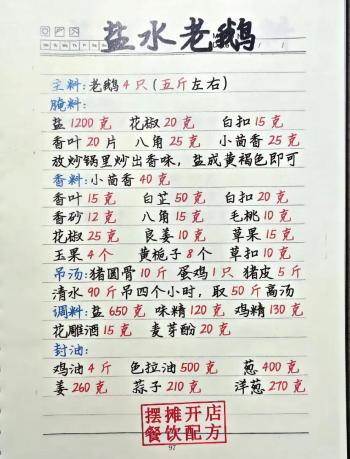 盐水老鹅
主料:老鹅4只(五斤左右)
腌料:
盐1200克 花椒20克 白扣15克
香叶20片 八角25克 小茴香25克
放炒锅里炒出香味,盐成黄褐色即可
香料:小茴香40克
香叶15克 白芷50克 白扣20克
香砂12克 八角15克 毛桃10克
花椒25克 良姜10克 草果15克
玉果4个 黄栀子8个 草扣10克
吊汤:猪圆骨10斤 蛋鸡1只 猪皮5斤
清水90斤吊四个小时,取50斤高汤
调料:盐650克 味精120克 鸡精130克
花雕酒15克 麦芽酚20克
封油:
鸡油4斤 色拉油500克 葱400克
姜260克 蒜子210克 洋葱270克
摆摊开店
餐饮配方
97